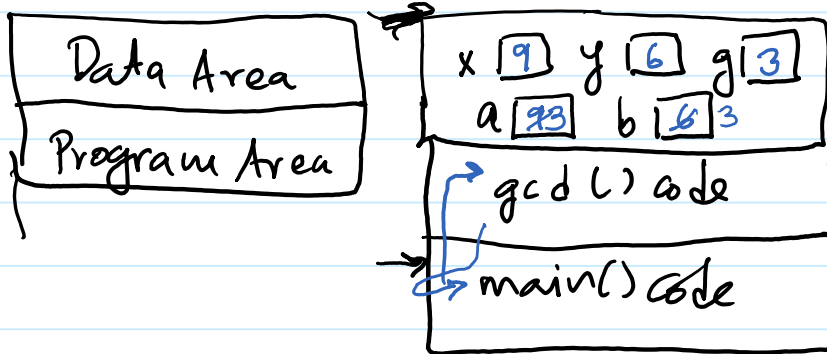 Data Area
Program Area
x 9 y 6 g 3
a 93 b 6 3
gcd () code
main() code